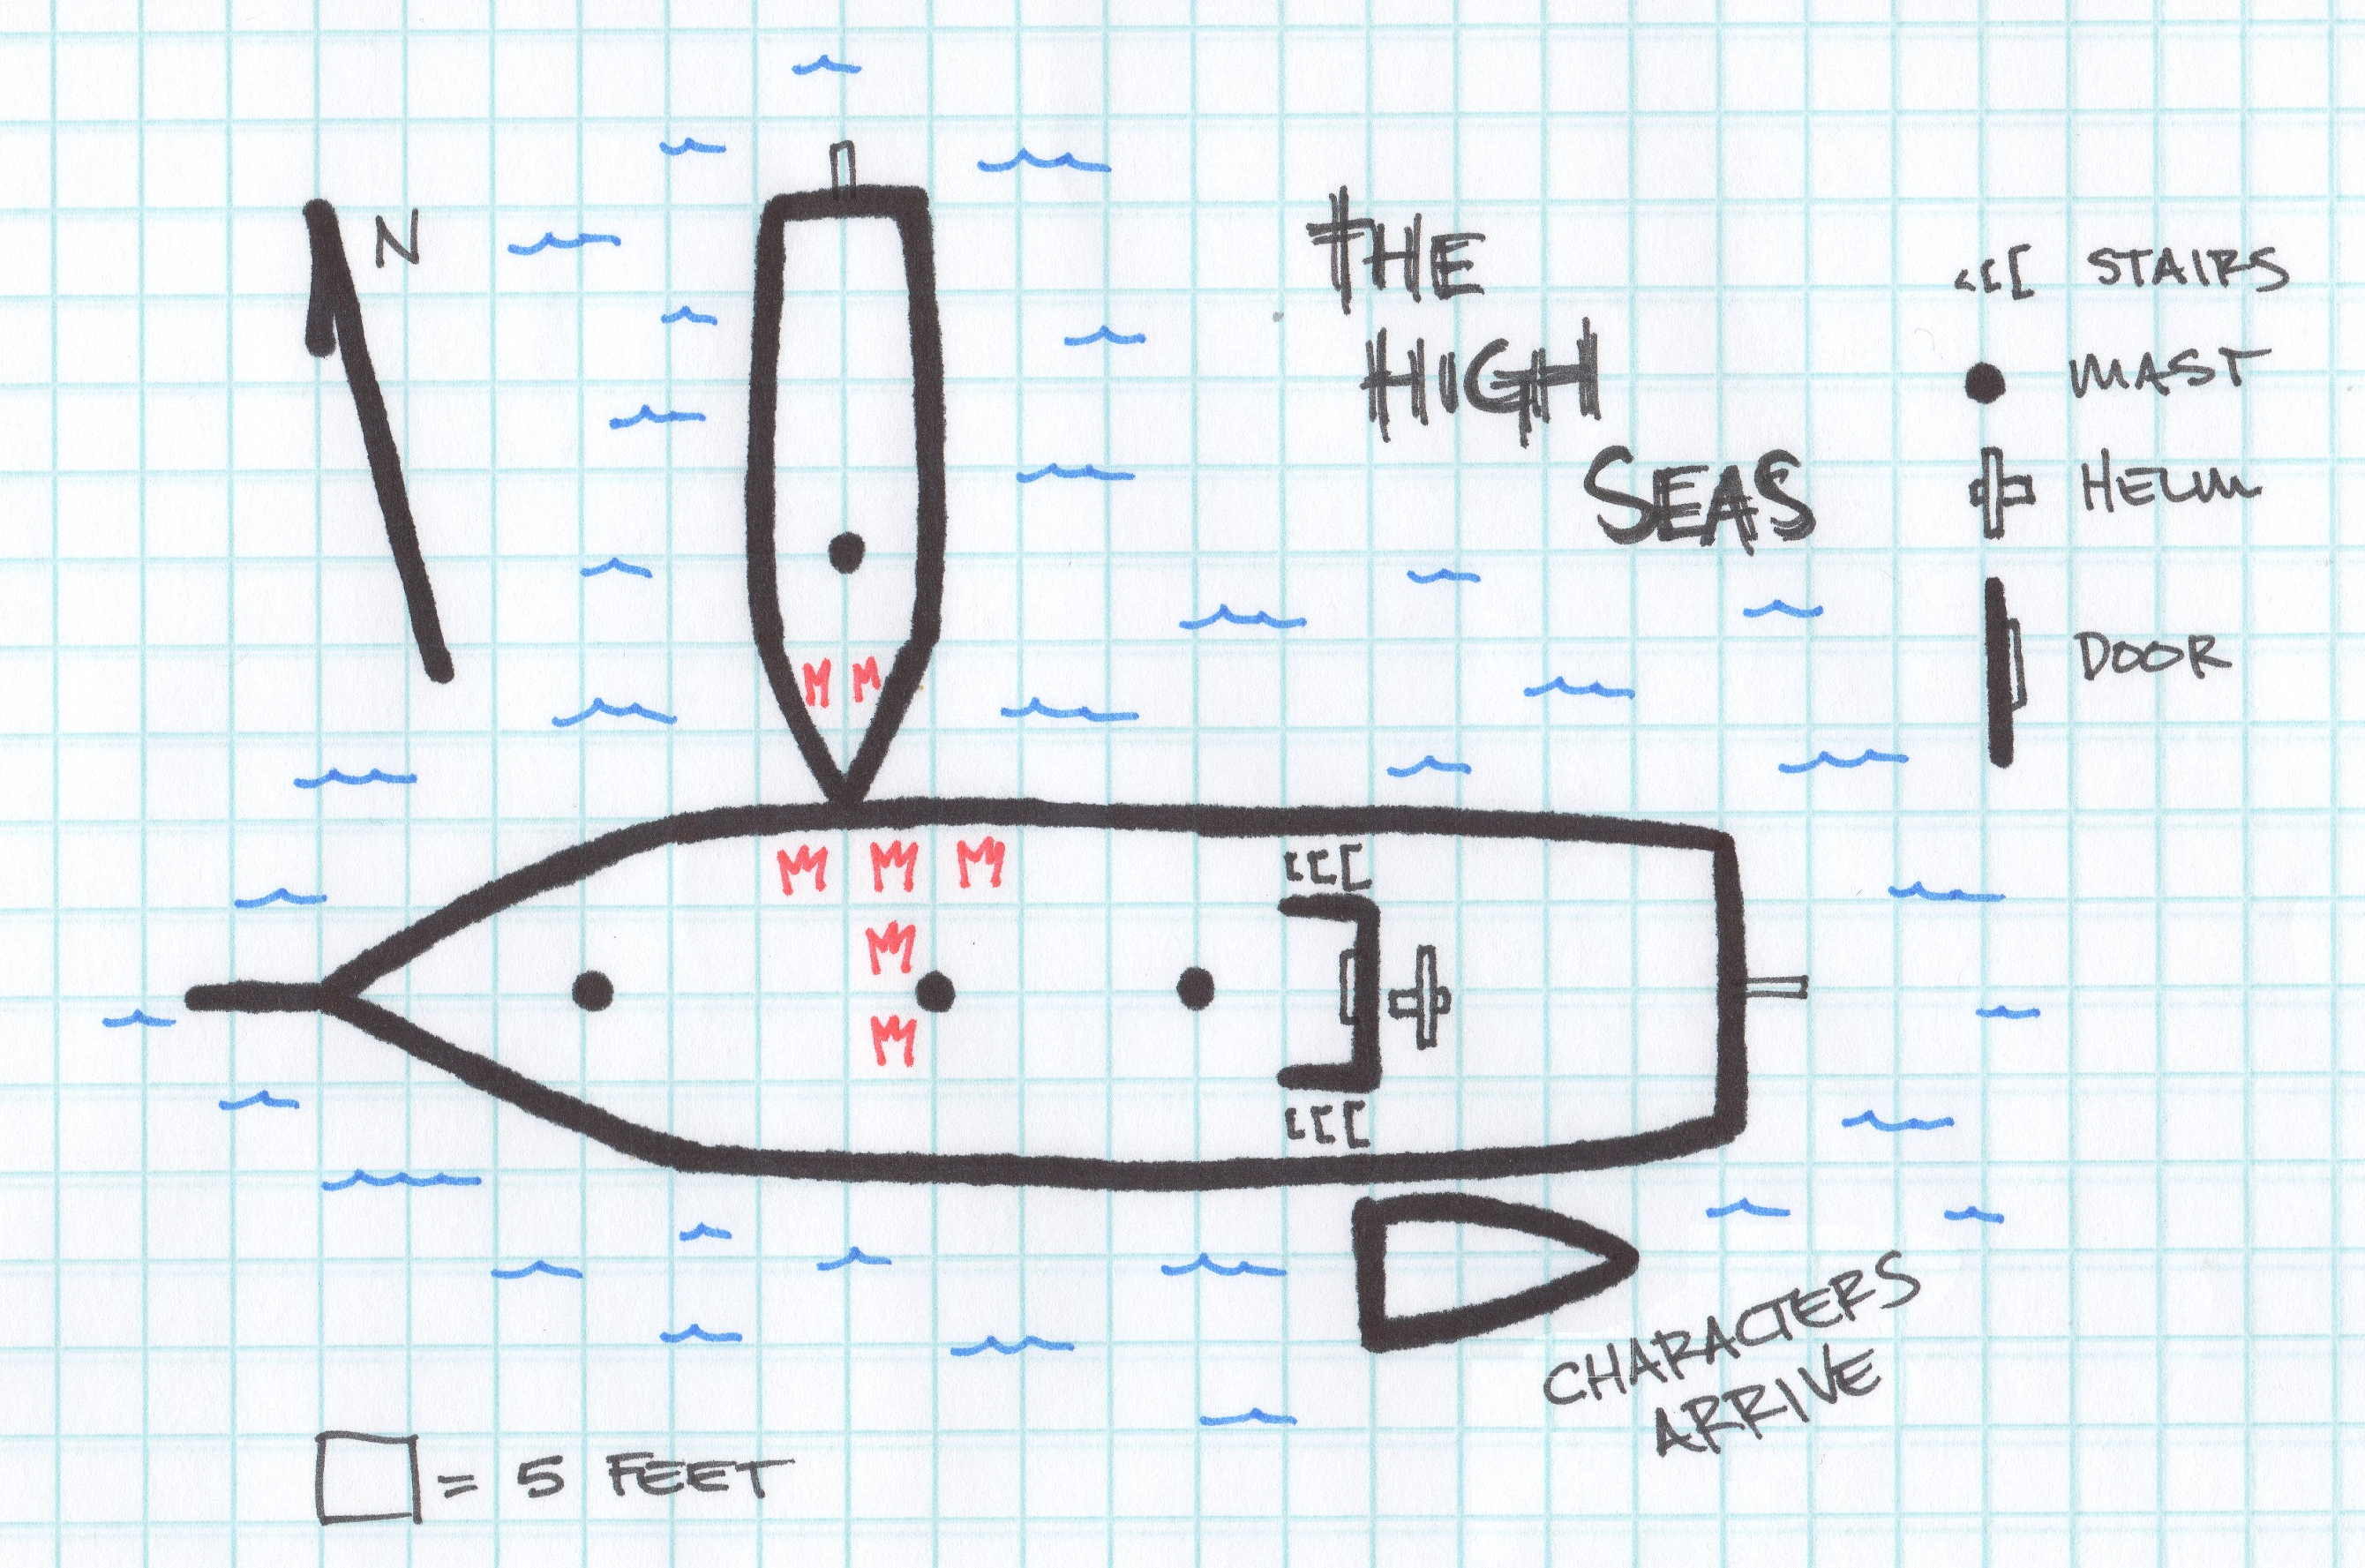 N
THE
HIGH
SEAS
STAIRS
MAST
HELM
DOOR
M M
M M M
M
M
CHARACTERS
ARRIVE
= 5 FEET